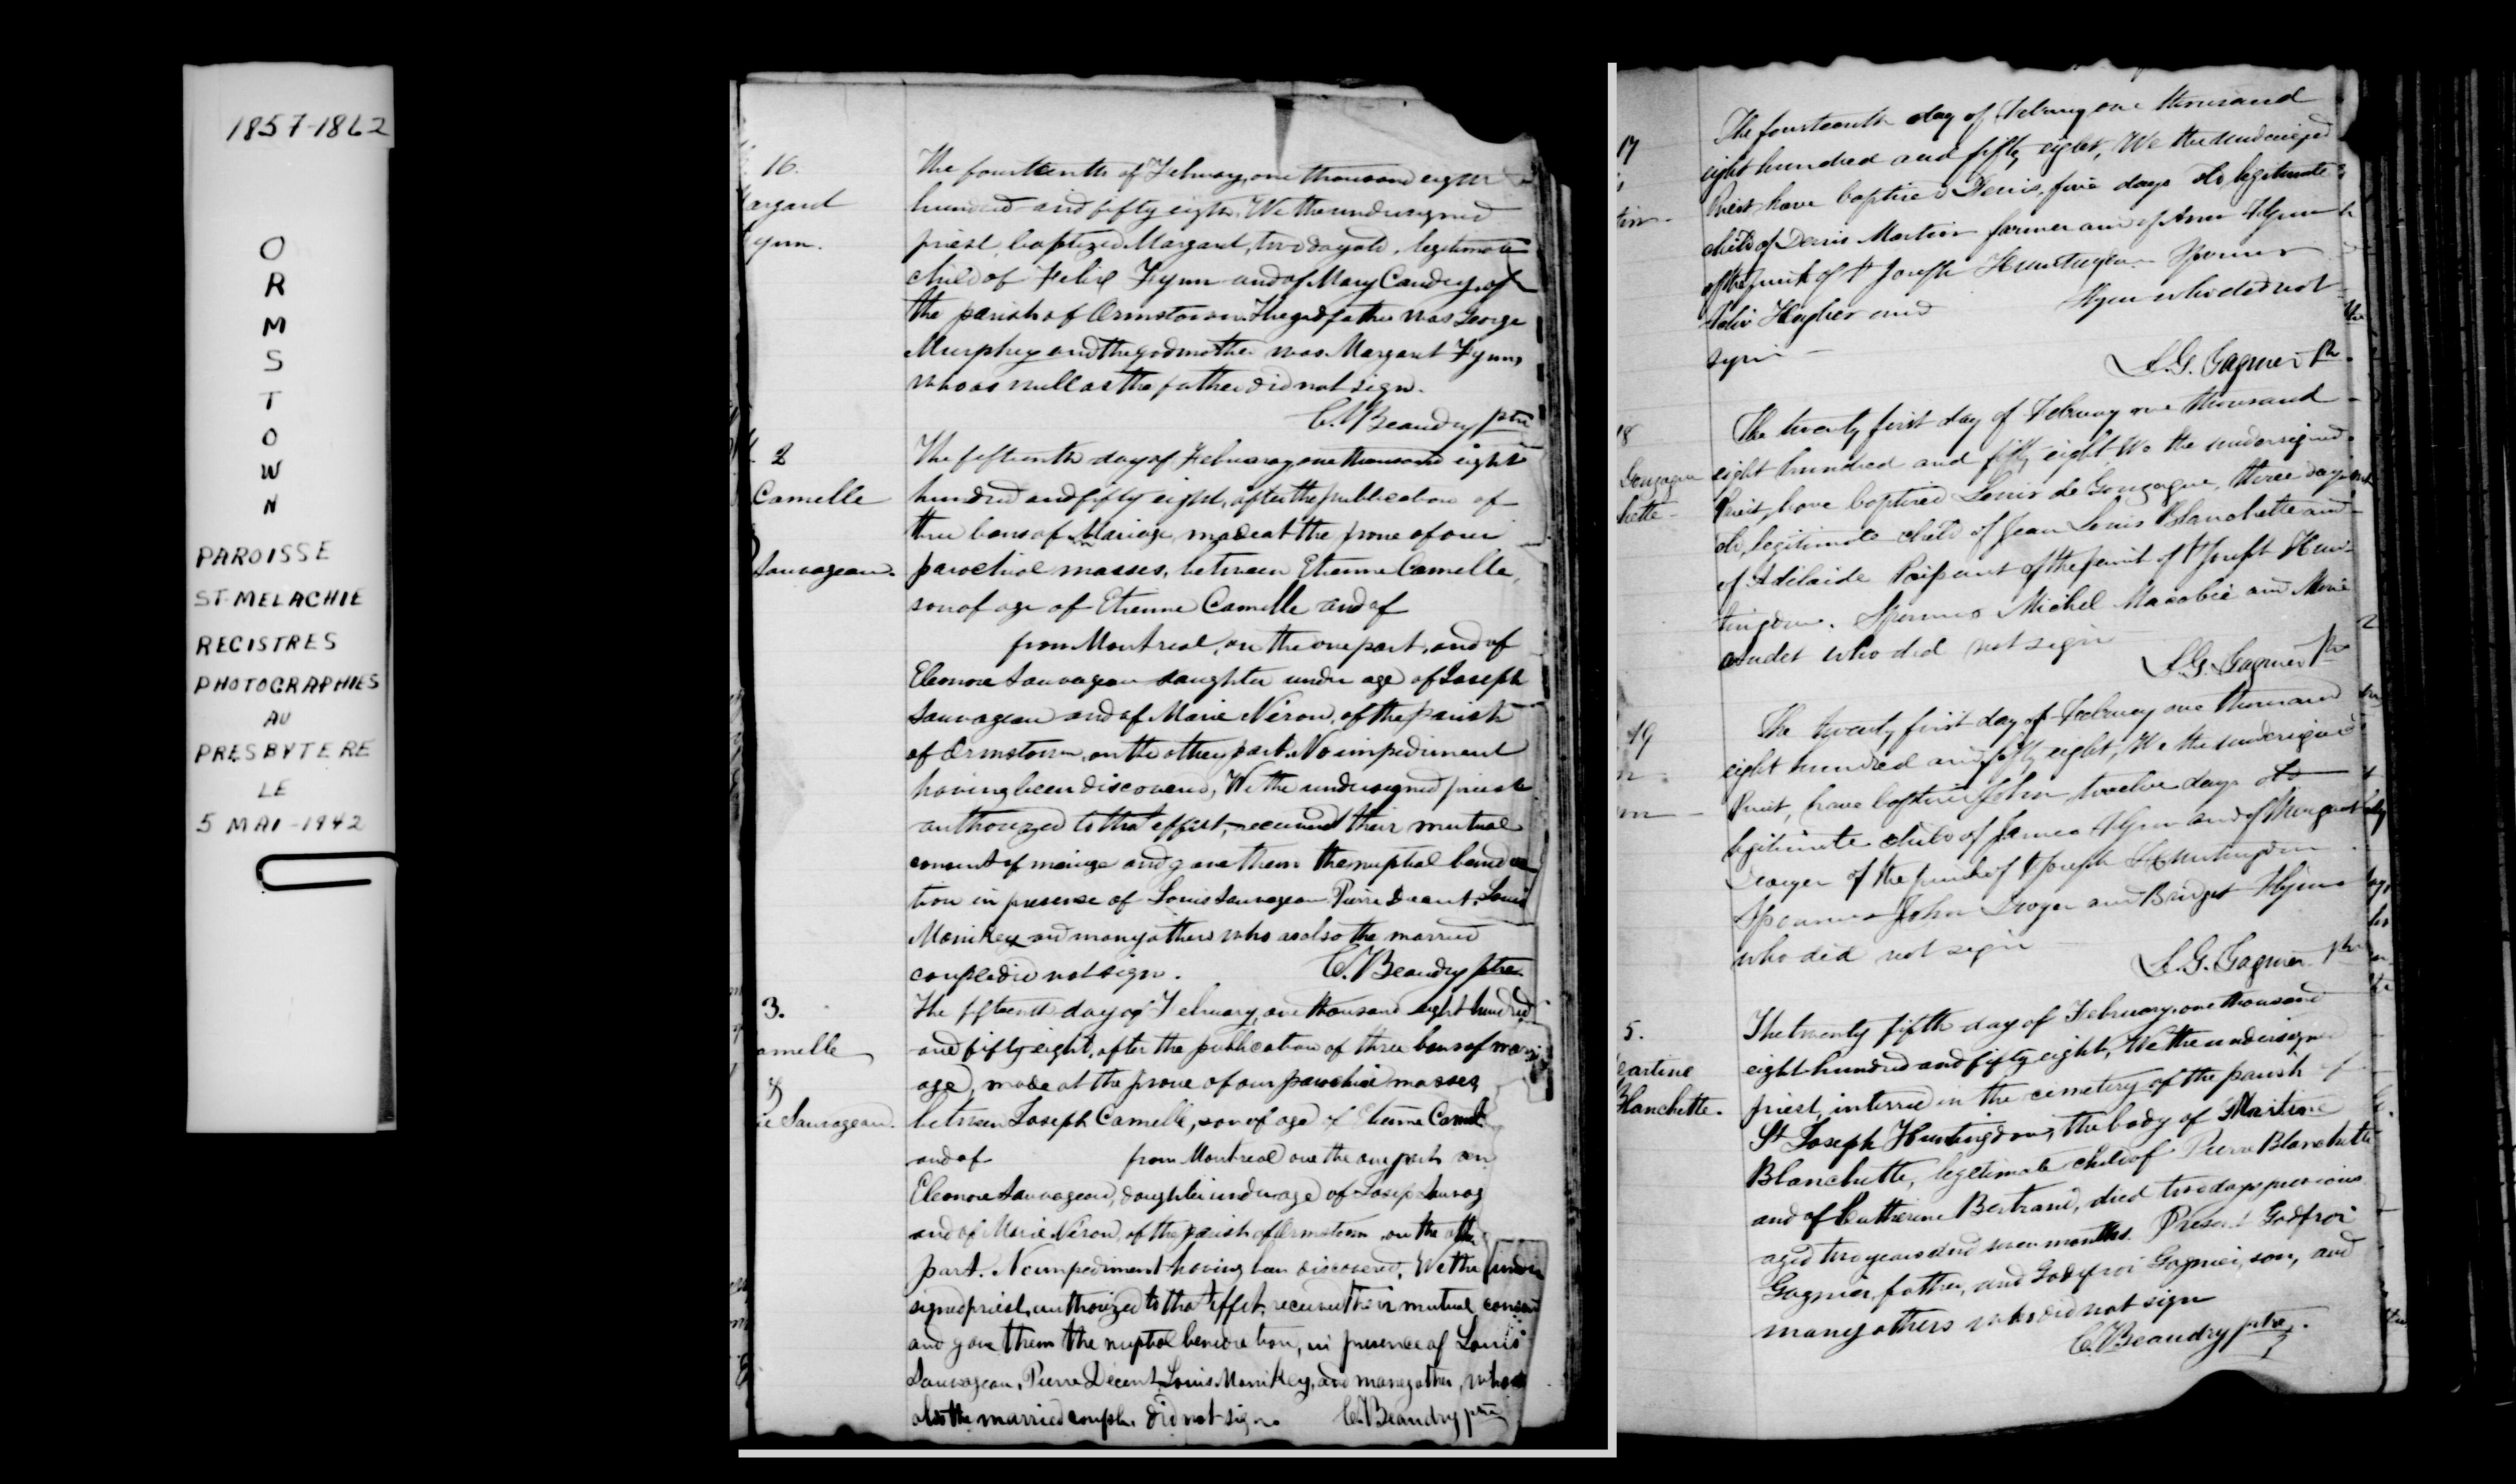 1857-1862
O
R
M
S
T
O
W
N
PAROISSE
ST-MELACHIE
REGISTRES
PHOTOGRAPHIES
AU
PRESBYTERE
LE
5 MAI-1942
16.
argaret
ynn.
The fourteenth of February, one thousand eight
hundred and fifty eight, We the undersigned
priest, baptized Margaret, two days old, legitimate
child of Felix Fynn and of Mary Candry, of
the parish of Ormstown. The godfather was George
Murphy and the godmother was Margaret Fynn,
who as well as the father did not sign.
C. Beaudry ptre
2
Camelle
Sauvageau.
The fifteenth day of February one thousand eight
hundred and fifty eight, after the publication of
three bans of Mariage, made at the prone of our
parochial masses, between Etienne Camelle,
son of age of Etienne Camelle and of
from Montreal, on the one part, and of
Eleonore Sauvageau daughter under age of Joseph
Sauvageau and of Marie Néron, of the parish
of Ormstown, on the other part. No impediment
having been discovered, We the undersigned priest
authorized to that effect, received their mutual
consent of mariage and gave them the nuptial benedic
tion in presence of Louis Sauvageau Pierre Decent, Louis
Monikey and many others who as also the married
couple did not sign. C. Beaudry ptre
3.
amelle
&
e Sauvageau.
The fifteenth day of February, one thousand eight hundred
and fifty eight, after the publication of three bans of mari
age, made at the prone of our parochial masses,
between Joseph Camelle, son of age of Etienne Camel
and of from Montreal one the one part, an
Eleonore Sauvageau, daughter under age of Josep Sauvag
and of Marie Néron, of the parish of Ormstown on the other
part. No impediment having been discovered, We the under
signed priest, authorized to that effet, received their mutual consent
and gave them the nuptial benediction, in presence of Louis
Sauvageau, Pierre Décent, Louis Monikey, and many other, who as
also the married couple did not sign. C. Beaudry ptre
17
tin -
The fourteenth day of February one thousand
eight hundred and fifty eight, We the undersigned
Priest, have baptised Denis, five days old, legitimate
child of Denis Martin farmer and of Ann Flynn
of the parish of St Joseph Huntingdon Sponsors
John Hughes and Flynn who did not
sign -
L. G. Gagnier Ptre
18
Gonzague
hette -
The twenty first day of February one thousand
eight hundred and fifty eight, We the undersigned
Priest, have baptised Louis de Gonzague, three days
old, legitimate child of Jean Louis Blanchette and
of Adelaide Paipant of the parish of St Joseph Hun-
tingdon. Sponsors Michel Macabie and Marie
audet who did not sign
L. G. Gagnier Ptre
19
The twenty first day of February one thousand
eight hundred and fifty eight, We the undersigned
Priest, have baptised John twelve days old
legitimate child of James Flynn and of Margaret
Dwyer of the parish of St Joseph Huntingdon.
Sponsors John Dwyer and Bridget Flynn
who did not sign
L. G. Gagnier Ptre
5.
artine
Blanchette.
The twenty fifth day of February, one thousand
eight hundred and fifty eight, We the undersigned
priest, interred in the cemetery of the parish of
St Joseph Huntingdon, the body of Martine
Blanchette, legitimate child of Pierre Blanchette
and of Catherine Bertrand, died two days previous
aged two years and seven months. Present Godfroi
Gagnier, father, and Godefroi Gagnier, son, and
many others who did not sign
C. Beaudry ptre.